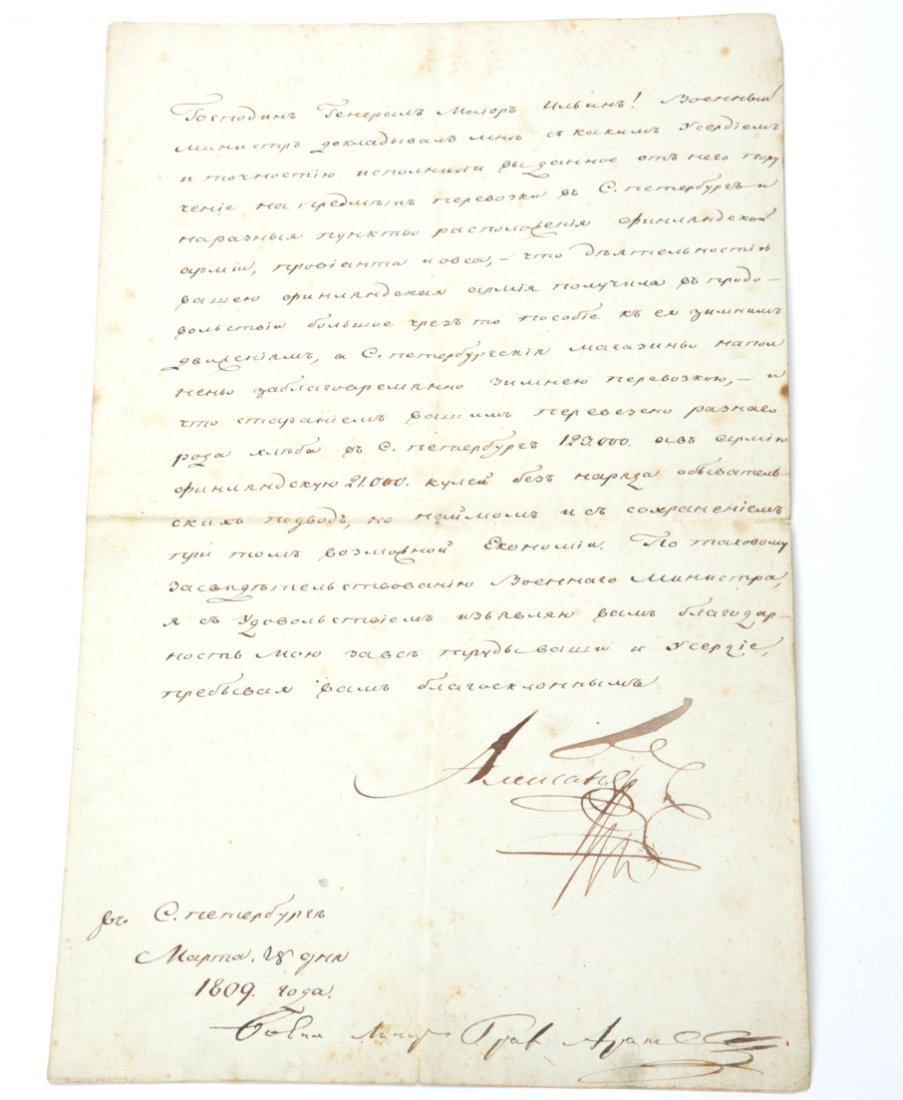 Господинъ Генералъ Маіоръ Ильинъ! Военный
Министръ докладывалъ мнѣ съ какимъ Усердіемъ
и точностію исполнили вы данное отъ него пору
ченіе на предмѣтъ перевозки въ С. петербургъ и
на разныя пункты расположенія финляндской
арміи, провіанта и овса, – что дѣятельностію
вашею финляндская армія получила въ продо-
вольствіи большое чрезъ то пособіе къ ея зимнимъ
движеніямъ, а С. петербургскія магазины напол
нены заблаговремянно зимнею перевозкою, – и
что стараніемъ вашимъ перевезено разнаго
рода хлѣба въ С. петербургъ 129.000. а въ армію
финляндскую 21.000. кулей безъ наряда обыватель-
скихъ подводъ, но наймомъ и съ сохраненіемъ
при томъ возможной Економіи. По таковому
засвидѣтельствованію Военнаго Министра,
я съ Удовольствіемъ изъявляю вамъ благодар-
ность мою за всѣ труды ваши и Усердіе,
пребывая вамъ благосклоннымъ
Александръ
въ С. петербургѣ
Марта. 28 дня
1809. года.
Граф Арак